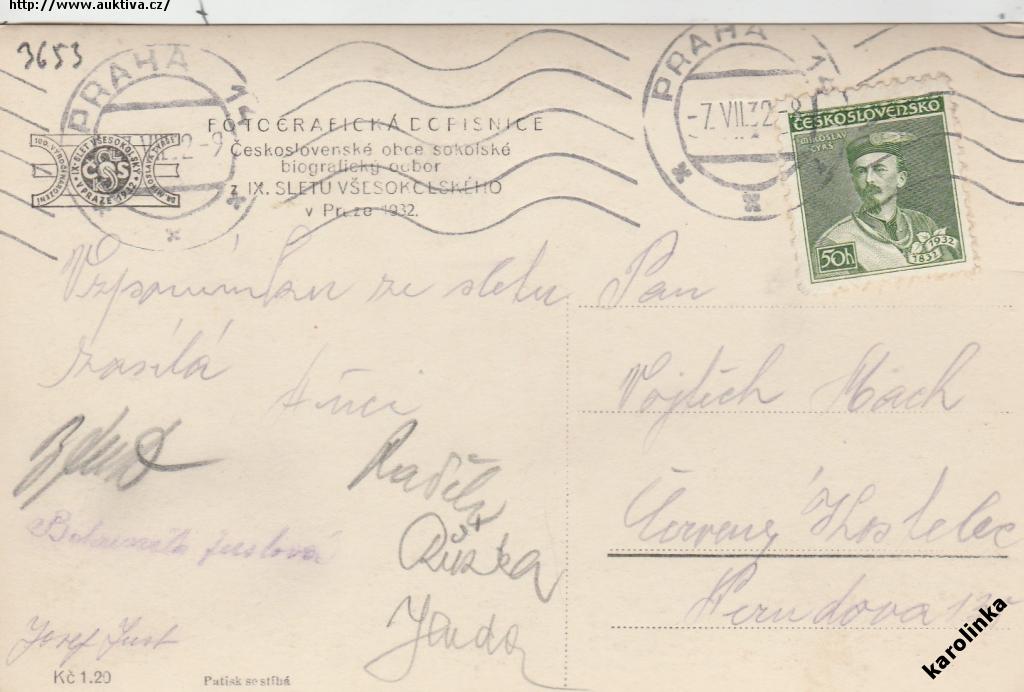 http://www.auktiva.cz/
3653
PRAHA 14
-7.VII.32-9
PRAHA 14
-7.VII.32-8
ČESKOSLOVENSKO
MIROSLAV
TYRŠ
50h
1832 1932
100. VÝROČÍ NAROZENÍ
IX. SLET VŠESOKOLSKÝ
V PRAZE 1932
ČOS
DR. MIROSLAVA TYRŠE
FOTOGRAFICKÁ DOPISNICE
Československé obce sokolské
biografický odbor
z IX. SLETU VŠESOKOLSKÉHO
v Praze 1932.
Vzpomínku ze sletu
zasílá
Anči
Růžka
Jenda
Josef Just
Kč 1.20
Patisk se stíhá
Pan
Vojtěch Mach
Červený Kostelec
karolinka